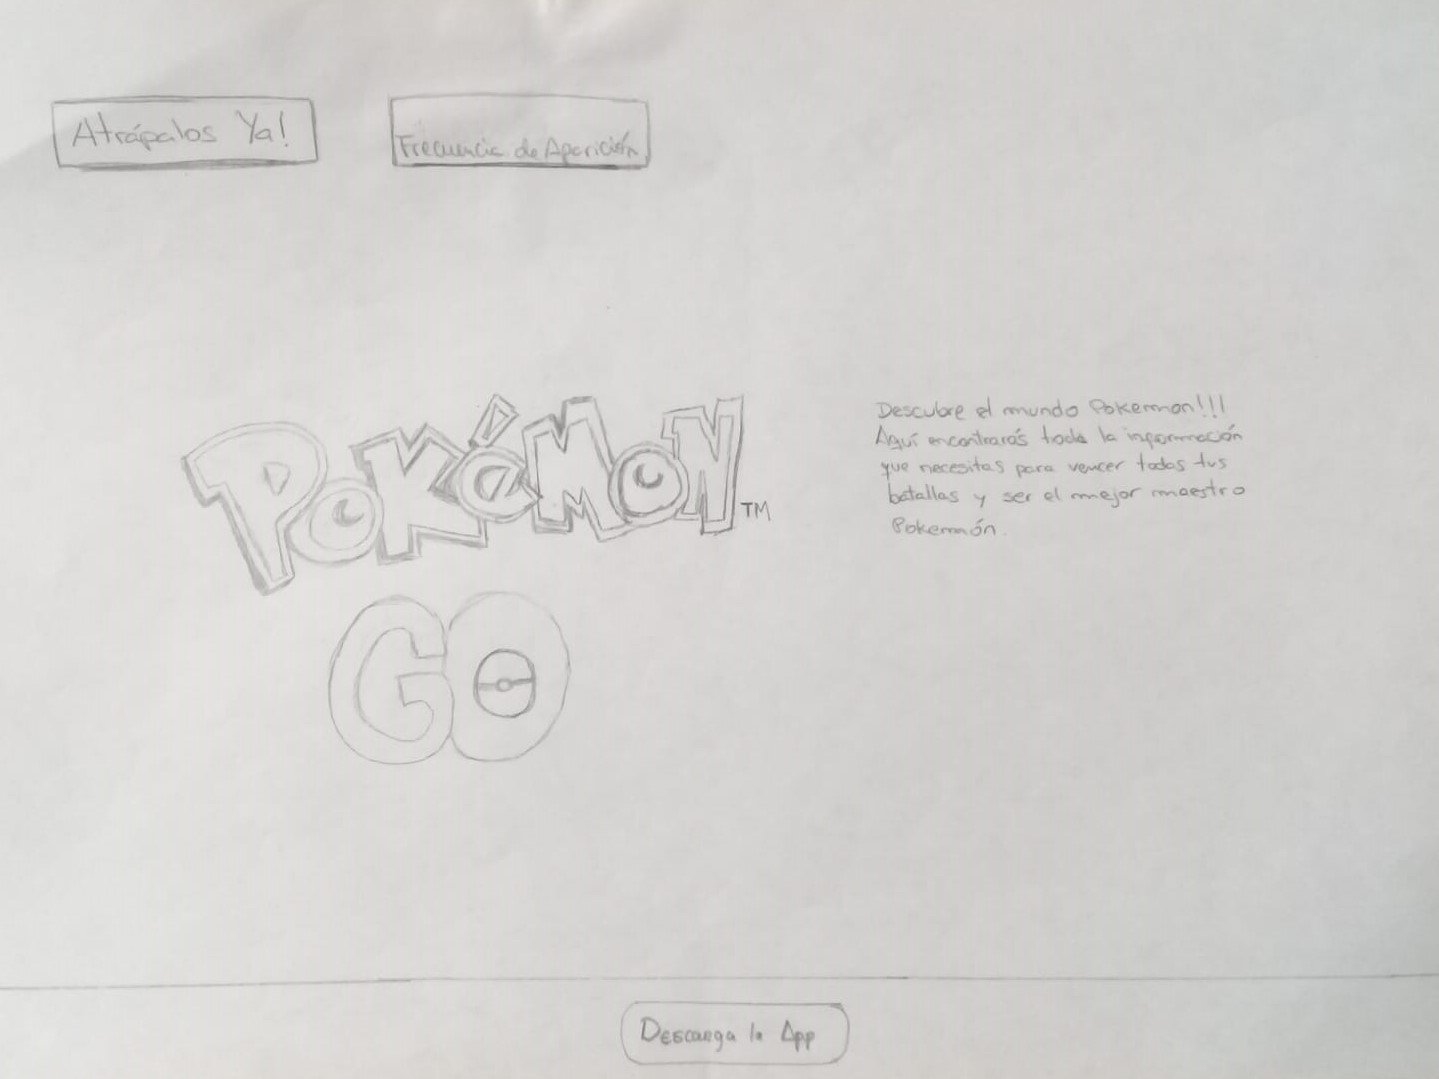 Atrápalos Ya!
Frecuencia de Aparición
POKÉMON TM
GO
Descubre el mundo Pokemon!!!
Aquí encontrarás toda la información
que necesitas para vencer todas tus
batallas y ser el mejor maestro
Pokemón.
Descarga la App